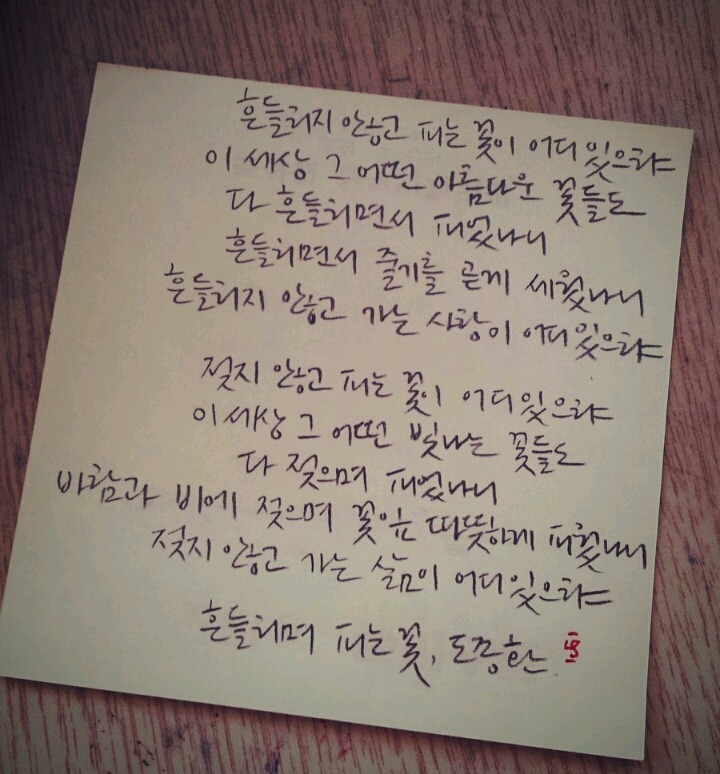 흔들리지 않고 피는 꽃이 어디 있으랴
이 세상 그 어떤 아름다운 꽃들도
다 흔들리면서 피었나니
흔들리면서 줄기를 곧게 세웠나니
흔들리지 않고 가는 사랑이 어디 있으랴
젖지 않고 피는 꽃이 어디 있으랴
이 세상 그 어떤 빛나는 꽃들도
다 젖으며 피었나니
바람과 비에 젖으며 꽃잎 따뜻하게 피웠나니
젖지 않고 가는 삶이 어디 있으랴
흔들리며 피는 꽃, 도종환